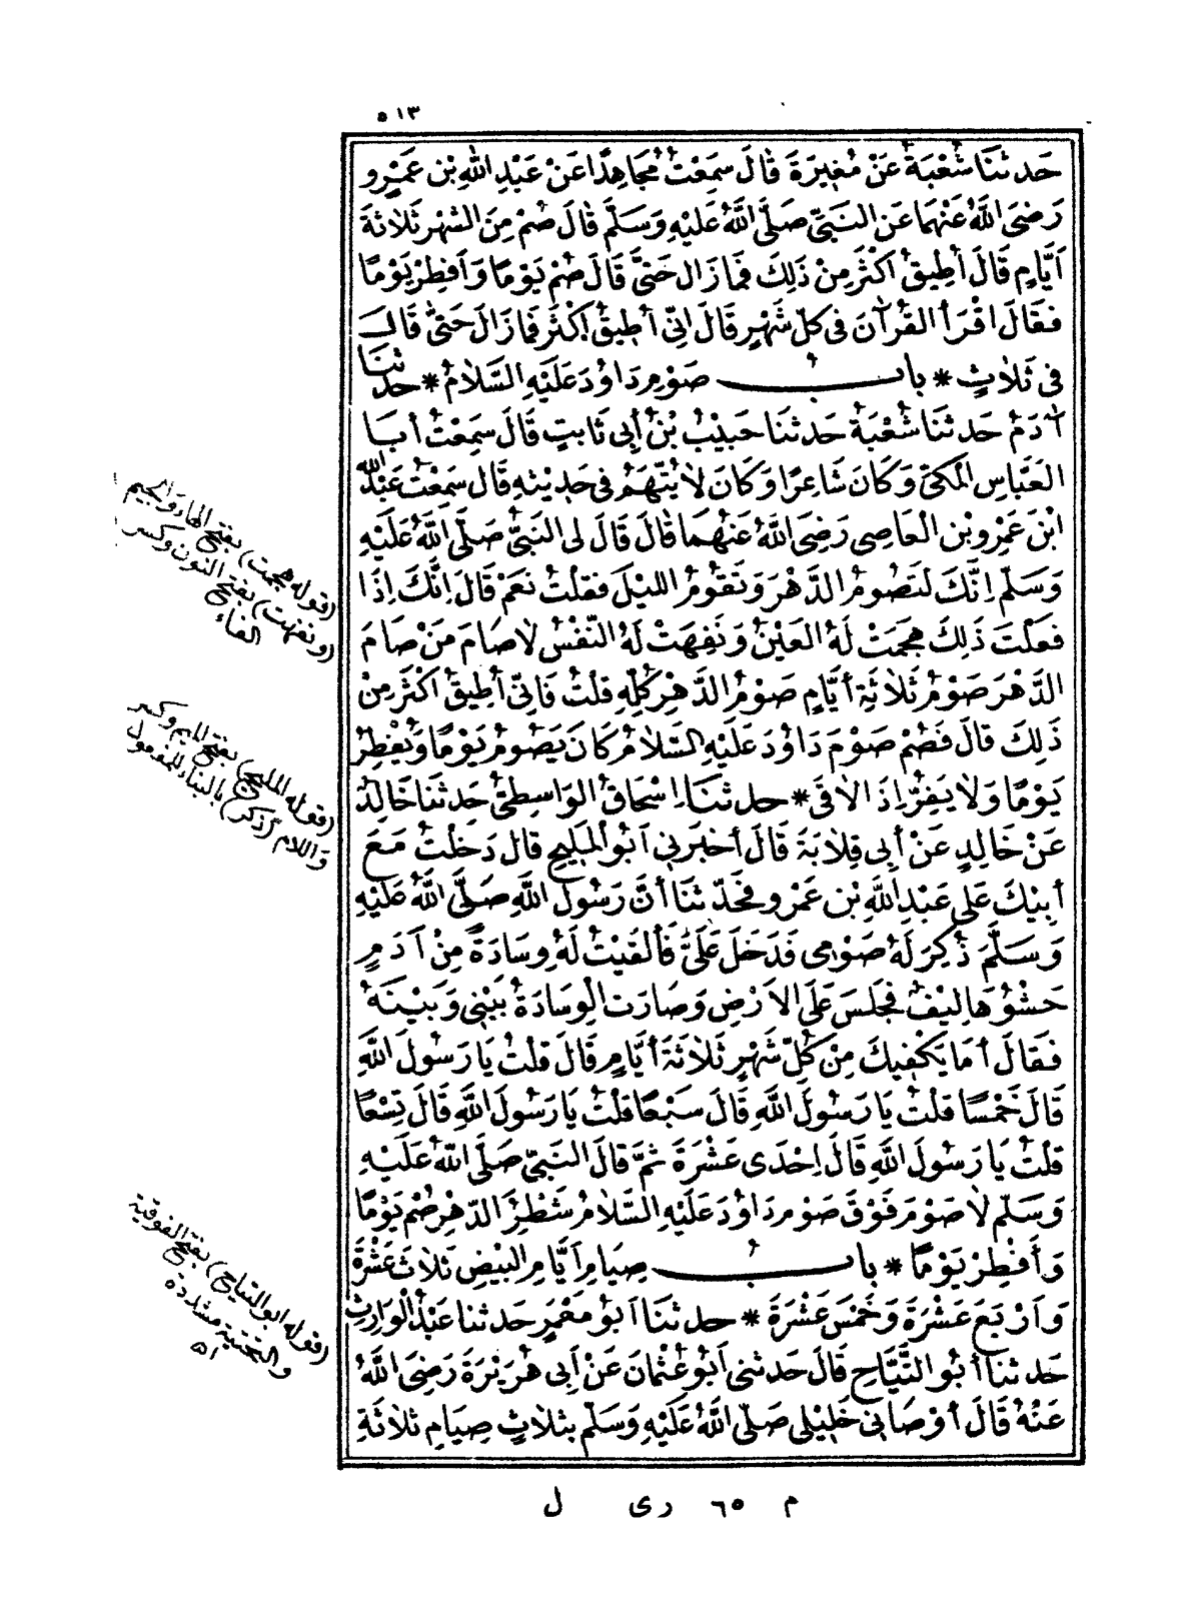 ٥١٣
حَدثنَا شُعْبَةُ عَنْ مُغِيرَةَ قَالَ سَمِعْتُ مُجَاهِدًا عَنْ عَبْدِ اللهِ بْنِ عَمْرٍو
رَضِىَ اللهُ عَنْهُمَا عَنِ النَبِىِّ صَلَّى اللهُ عَلَيْهِ وَسَلَّمَ قَالَ صُمْ مِنَ الشَهْرِ ثَلَاثَةَ
أَيَّامٍ قَالَ أُطِيقُ أَكْثَرَ مِنْ ذَلِكَ فَمَا زَالَ حَتَّى قَالَ صُمْ يَوْمًا وَأَفْطِرْ يَوْمًا
فَقَالَ اقْرَأِ القُرْآنَ فِى كُلِّ شَهْرٍ قَالَ إِنِّى أُطِيقُ أَكْثَرَ فَمَا زَالَ حَتَّى قَالَ
فِى ثَلَاثٍ * بابُ صَوْمِ دَاوُدَ عَلَيْهِ السَّلَامُ * حدثنَا
آدَمُ حَدثنَا شُعْبَةُ حَدثنَا حَبِيْبُ بْنُ أَبِى ثَابِتٍ قَالَ سَمِعْتُ أَبَا
العَبَّاسِ المَكِّىَّ وَكَانَ شَاعِرًا وَكَانَ لَا يُتَّهَمُ فِى حَدِيْثِهِ قَالَ سَمِعْتُ عَبْدَ اللهِ
ابْنَ عَمْرِو بْنِ الْعَاصِى رَضِىَ اللهُ عَنْهُمَا قَالَ قَالَ لِى النَبِىُّ صَلَّى اللهُ عَلَيْهِ
وَسَلَّمَ إِنَّكَ لَتَصُومُ الدَّهْرَ وَتَقُومُ اللَيْلَ فَقُلْتُ نَعَمْ قَالَ إِنَّكَ إِذَا
فَعَلْتَ ذَلِكَ هَجَمَتْ لَهُ العَيْنُ وَنَفِهَتْ لَهُ النَّفْسُ لَا صَامَ مَنْ صَامَ
الدَّهْرَ صَوْمُ ثَلَاثَةِ أَيَّامٍ صَوْمُ الدَّهْرِ كُلِّهِ قُلْتُ فَإِنِّى أُطِيقُ أَكْثَرَ مِنْ
ذَلِكَ قَالَ فَصُمْ صَوْمَ دَاوُدَ عَلَيْهِ السَّلَامُ كَانَ يَصُومُ يَوْمًا وَيُفْطِرُ
يَوْمًا وَلَا يَفِرُّ إِذَا لَاقَى * حدثنَا إِسْحَاقُ الوَاسِطِىُّ حَدثنَا خَالِدٌ
عَنْ خَالِدٍ عَنْ أَبِى قِلَابَةَ قَالَ أَخْبَرَنِى أَبُو الْمَلِيحِ قَالَ دَخَلْتُ مَعَ
أَبِيْكَ عَلَى عَبْدِ اللهِ بْنِ عَمْرٍو فَحَدَّثنَا أَنَّ رَسُولَ اللهِ صَلَّى اللهُ عَلَيْهِ
وَسَلَّمَ ذُكِرَ لَهُ صَوْمِى فَدَخَلَ عَلَىَّ فَأَلْقَيْتُ لَهُ وِسَادَةً مِنْ أَدَمٍ
حَشْوُهَا لِيْفٌ فَجَلَسَ عَلَى الأَرْضِ وَصَارَتِ الْوِسَادَةُ بَيْنِى وَبَيْنَهُ
فَقَالَ أَمَا يَكْفِيكَ مِنْ كُلِّ شَهْرٍ ثَلَاثَةُ أَيَّامٍ قَالَ قُلْتُ يَا رَسُولَ اللهِ
قَالَ خَمْسًا قُلْتُ يَا رَسُولَ اللهِ قَالَ سَبْعًا قُلْتُ يَا رَسُولَ اللهِ قَالَ تِسْعًا
قُلْتُ يَا رَسُولَ اللهِ قَالَ إِحْدَى عَشْرَةَ ثُمَّ قَالَ النَبِىُّ صَلَّى اللهُ عَلَيْهِ
وَسَلَّمَ لَا صَوْمَ فَوْقَ صَوْمِ دَاوُدَ عَلَيْهِ السَّلَامُ شَطْرُ الدَّهْرِ صُمْ يَوْمًا
وَأَفْطِرْ يَوْمًا * بابُ صِيَامِ أَيَّامِ البِيْضِ ثَلَاثَ عَشْرَةَ
وَأَرْبَعَ عَشْرَةَ وَخَمْسَ عَشْرَةَ * حدثنَا أَبُو مَعْمَرٍ حَدثنا عَبْدُ الْوَارِثِ
حَدثنا أَبُو التَّيَّاحِ قَالَ حَدثنى أَبُو عُثْمَانَ عَنْ أَبِى هُرَيْرَةَ رَضِىَ اللهُ
عَنْهُ قَالَ أَوْصَانِى خَلِيْلِى صَلَّى اللهُ عَلَيْهِ وَسَلَّمَ بِثَلَاثٍ صِيَامِ ثَلَاثَةِ
(قوله هجمت) بفتح الهاء والجيم
(ونفهت) بفتح النون وكسر
الفاء
(قوله المليح) بفتح الميم وكسر
واللام (ذكر) بالبناء للمفعول
(قوله ابو التياح) بفتح الفوقية
والتحتية مشددة
اه
م ٦٥ رى ل